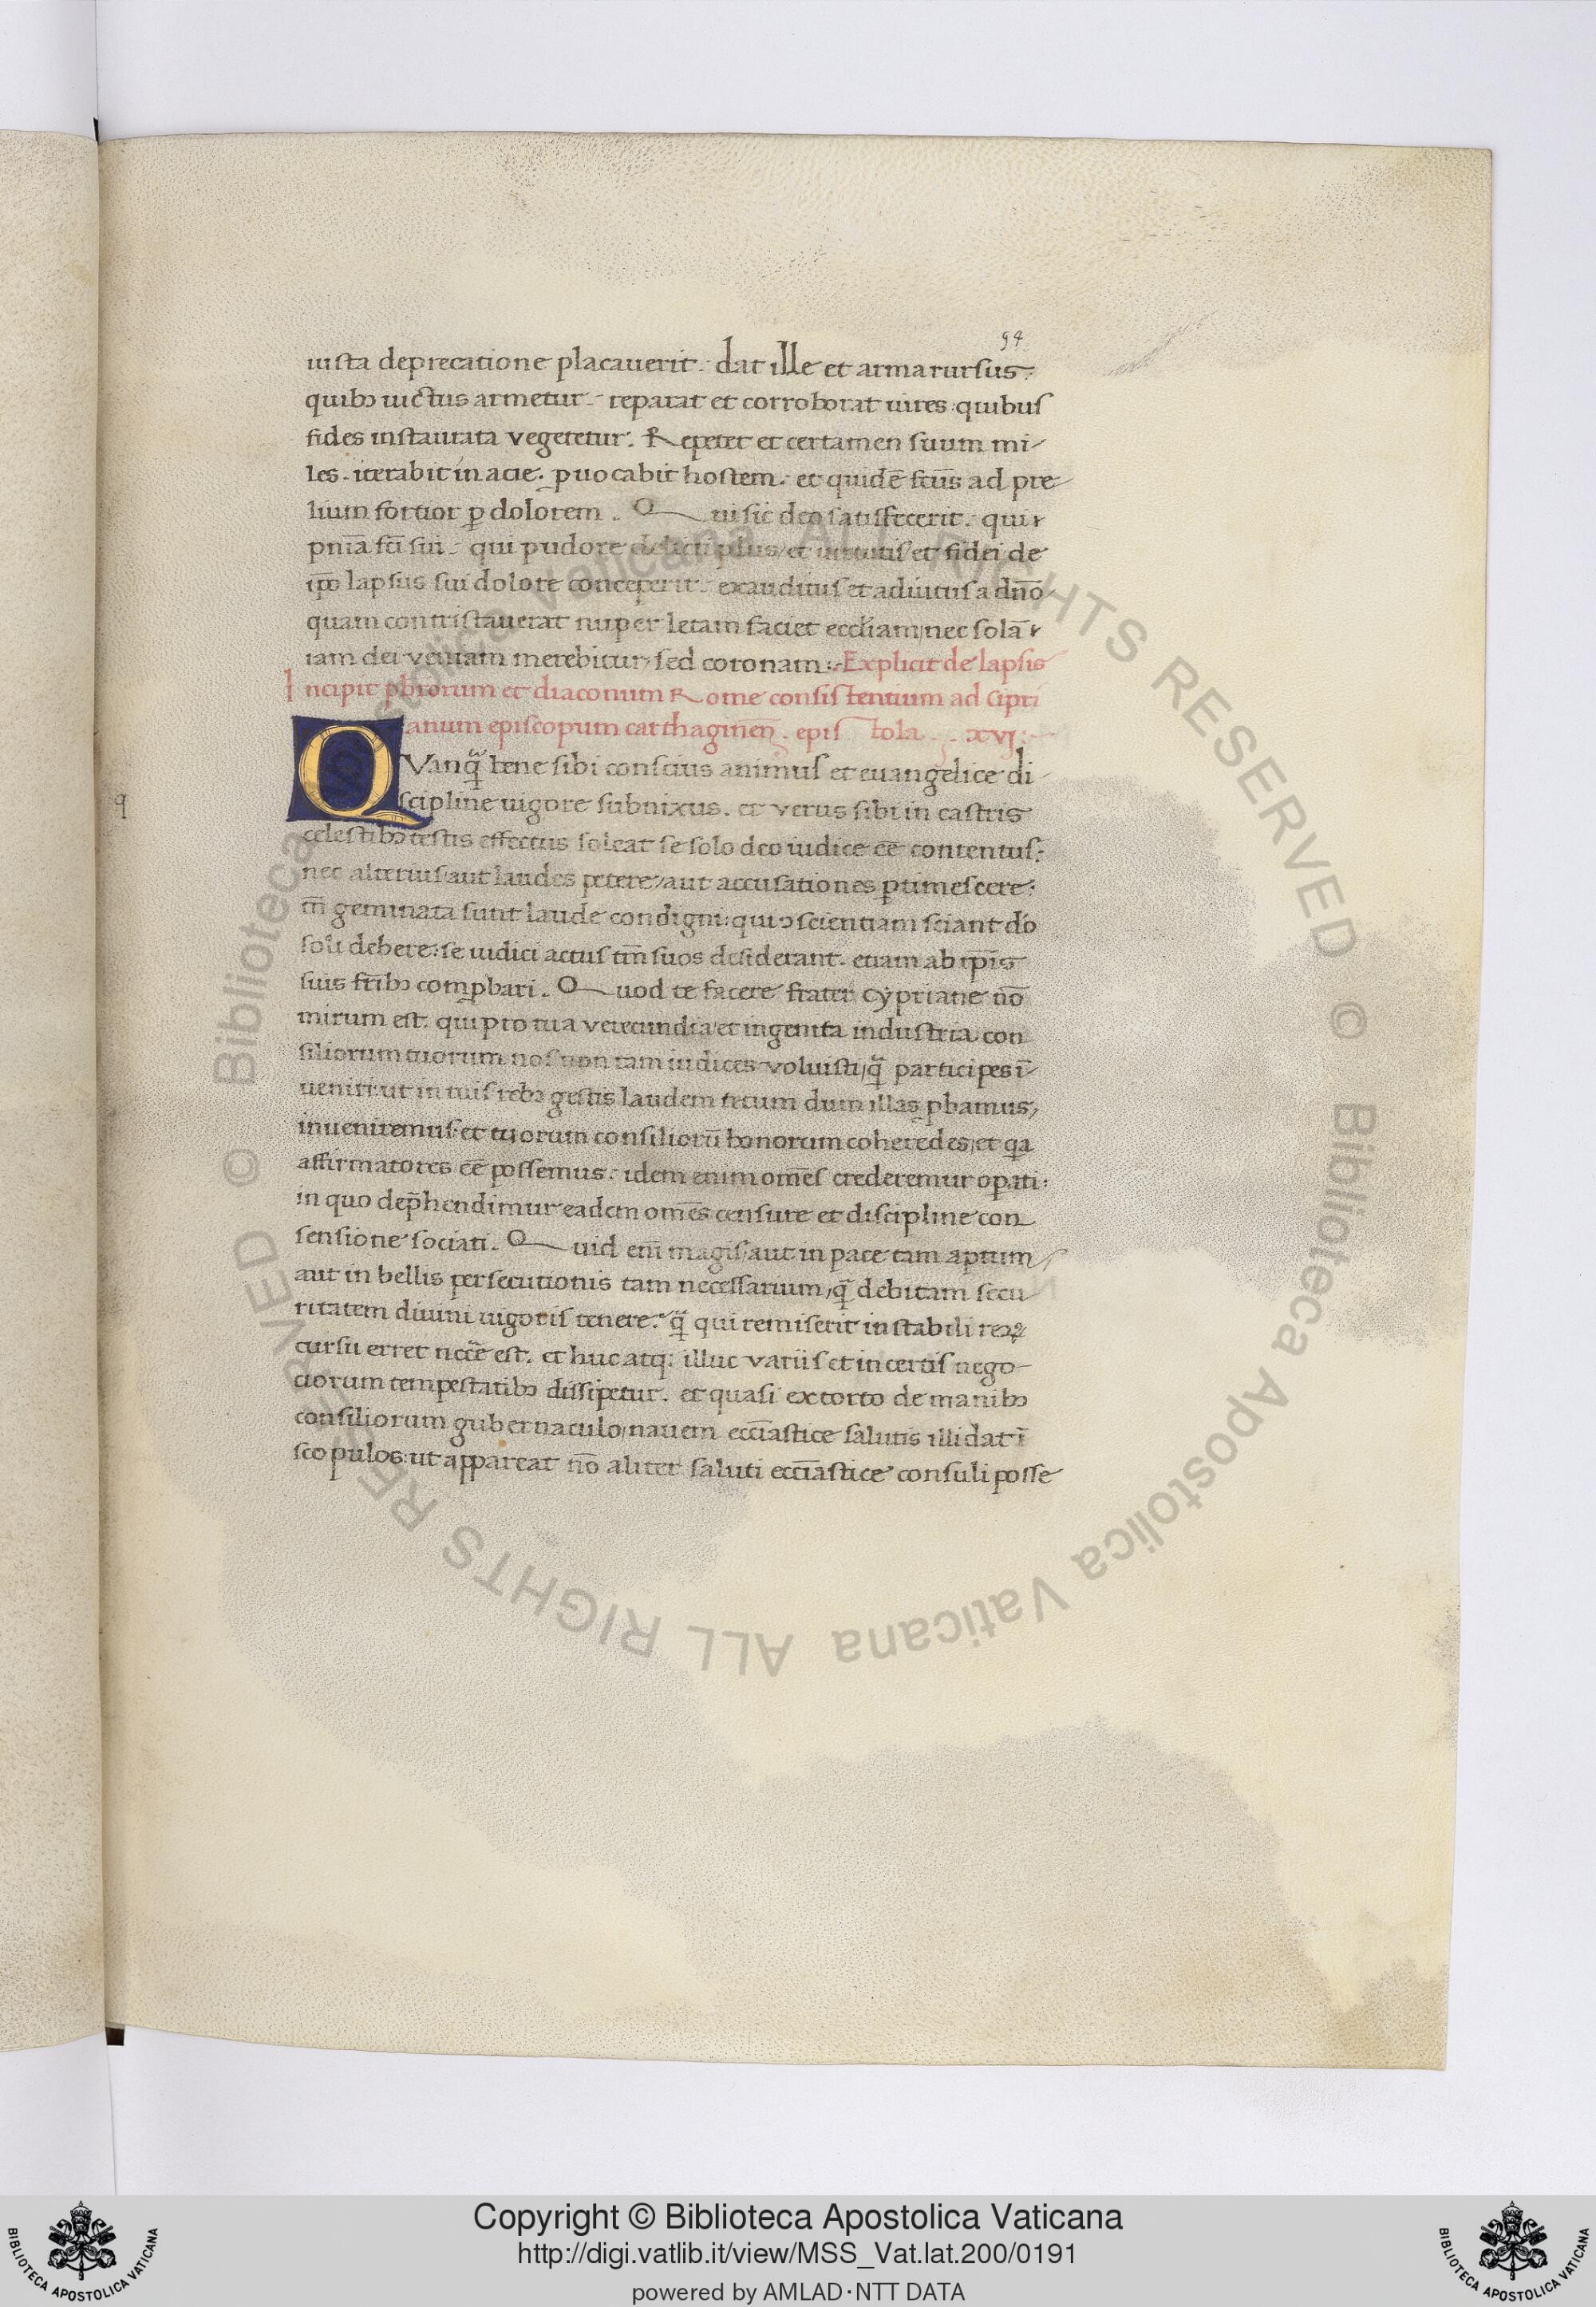 94
iusta deprecatione placauerit. dat ille et arma rursus:
quibꝫ uictus armetur. reparat et corroborat uires: quibus
fides instaurata vegetetur. Repetet et certamen suum mi
les. iterabit in acie. ꝓuocabit hostem. et quidē fcūs ad pre
lium fortior ꝑ dolorem. Qui sic deo satisfecerit. qui
pniā fci sui. qui pudore delicti plus et uirtutis et fidei de
ipō lapsus sui dolore conceperit. exauditus et adiutus a dn̄o
quam contristauerat nuper letam faciet eccl̄iam, nec solā
iam dei veniam merebitur, sed coronam: Explicit de lapsis
Incipit pb̄rorum et diaconum Rome consistentium ad Cipri
anum episcopum carthaginen̄. epistola. xvj:
QVanq̄ bene sibi conscius animus et euangelice di
scipline uigore subnixus. et verus sibi in castris
celestibꝫ testis effectus soleat se solo deo iudice eē contentus:
nec alterius aut laudes petere, aut accusationes ꝑtimescere:
tn̄ geminata sunt laude condigni: qui ꝯscientiam sciant dō
soli debere: se iudici actus tn̄ suos desiderant. etiam ab ip̄is
suis fr̄ibꝫ comꝓbari. Quod te facere frater Cypriane nō
mirum est. qui pro tua verecundia et ingenita industria con
siliorum tuorum nos non tam iudices voluisti, q̄ participes ī
ueniri: ut in tuis rebꝫ gestis laudem tecum dum illas ꝓbamus,
inueniremus: et tuorum consiliorū bonorum coheredes, et qa
affirmatores eē possemus. idem enim om̄es crederemur opati:
in quo dep̄hendimur eadem om̄es censure et discipline con
sensione sociati. Quid eni̅ magis, aut in pace tam aptum,
aut in bellis persecutionis tam necessarium, q̄ debitam secu
ritatem diuini uigoris tenere. q̄ qui remiserit instabili reꝝ
cursu erret necc̄e est. et huc atq; illuc variis et incertis nego
ciorum tempestatibꝫ dissipetur. et quasi extorto de manibꝫ
consiliorum gubernaculo, nauem ecc̄iastice salutis illidat ī
scopulos: ut appareat nō aliter saluti ecc̄iastice consuli posse
q
© Biblioteca Apostolica Vaticana ALL RIGHTS RESERVED © Biblioteca Apostolica Vaticana ALL RIGHTS RESERVED
Copyright © Biblioteca Apostolica Vaticana
http://digi.vatlib.it/view/MSS_Vat.lat.200/0191
powered by AMLAD·NTT DATA
BIBLIOTECA APOSTOLICA VATICANA
BIBLIOTECA APOSTOLICA VATICANA